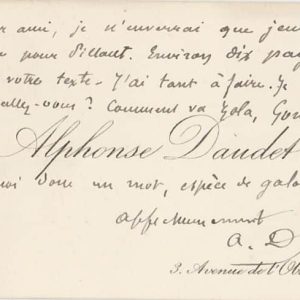 ami, je n'enverrai que
pour Pillaut. Environ dix
votre texte. J'ai tant à faire. Je
allez-vous ? Comment va Zola,
Alphonse Daudet
donc un mot, espèce de
affectueusement
A. D
3. Avenue de l'Ob